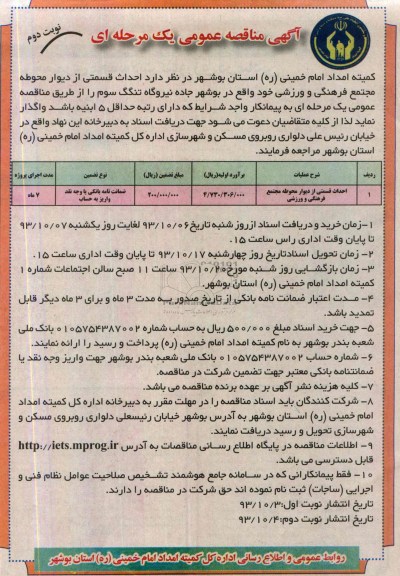 آگهی مناقصه عمومی یک مرحله ای
نوبت دوم
کمیته امداد امام خمینی (ره) استان بوشهر در نظر دارد احداث قسمتی از دیوار محوطه
مجتمع فرهنگی و ورزشی خود واقع در بوشهر جاده نیروگاه تنگک سوم را از طریق مناقصه
عمومی یک مرحله ای به پیمانکار واجد شرایط که دارای رتبه حداقل ۵ ابنیه باشد واگذار
نماید لذا از کلیه متقاضیان دعوت می شود جهت دریافت اسناد به دبیرخانه این نهاد واقع در
خیابان رئیس علی دلواری روبروی مسکن و شهرسازی اداره کل کمیته امداد امام خمینی (ره)
استان بوشهر مراجعه فرمایند.
ردیف شرح عملیات برآورد اولیه(ریال) مبلغ تضمین (ریال) نوع تضمین مدت اجرای پروژه
۱ احداث قسمتی از دیوار محوطه مجتمع فرهنگی و ورزشی ۴/۷۳۰/۳۰۶/۰۰۰ ۲۰۰/۰۰۰/۰۰۰ ضمانت نامه بانکی یا وجه نقد واریز به حساب ۷ ماه
۱-زمان خرید و دریافت اسناد ازروز شنبه تاریخ ۹۳/۱۰/۰۶ لغایت روز یکشنبه ۹۳/۱۰/۰۷
تا پایان وقت اداری راس ساعت ۱۵.
۲- زمان تحویل اسنادتاریخ روز چهارشنبه ۹۳/۱۰/۱۷ تا پایان وقت اداری ساعت ۱۵.
۳- زمان بازگشایی روز شنبه مورخ ۹۳/۱۰/۲۰ ساعت ۱۱ صبح سالن اجتماعات شماره ۱
کمیته امداد امام خمینی (ره) استان بوشهر.
۴- مدت اعتبار ضمانت نامه بانکی از تاریخ صدور به مدت ۳ ماه و برای ۳ ماه دیگر قابل
تمدید باشد.
۵- جهت خرید اسناد مبلغ ۵۰۰/۰۰۰ ریال به حساب شماره ۰۱۰۵۷۵۴۳۸۷۰۰۲ بانک ملی
شعبه بندر بوشهر به نام کمیته امداد امام خمینی (ره) پرداخت و رسید را ارائه نمایند.
۶- شماره حساب ۰۱۰۵۷۵۴۳۸۷۰۰۲ بانک ملی شعبه بندر بوشهر جهت واریز وجه نقد یا
ضمانتنامه بانکی معتبر جهت تضمین شرکت در مناقصه.
۷- کلیه هزینه نشر آگهی بر عهده برنده مناقصه می باشد.
۸- شرکت کنندگان باید اسناد مناقصه را در مهلت مقرر به دبیرخانه اداره کل کمیته امداد
امام خمینی (ره) استان بوشهر به آدرس بوشهر خیابان رئیسعلی دلواری روبروی مسکن و
شهرسازی تحویل و رسید دریافت نمایند.
۹- اطلاعات مناقصه در پایگاه اطلاع رسانی مناقصات به آدرس http://iets.mprog.ir
قابل دسترسی می باشد.
۱۰- فقط پیمانکارانی که در سامانه جامع هوشمند تشخیص صلاحیت عوامل نظام فنی و
اجرایی (ساجات) ثبت نام نموده اند حق شرکت در مناقصه را دارند.
تاریخ انتشار نوبت اول: ۹۳/۱۰/۳
تاریخ انتشار نوبت دوم: ۹۳/۱۰/۴
روابط عمومی و اطلاع رسانی اداره کل کمیته امداد امام خمینی (ره) استان بوشهر